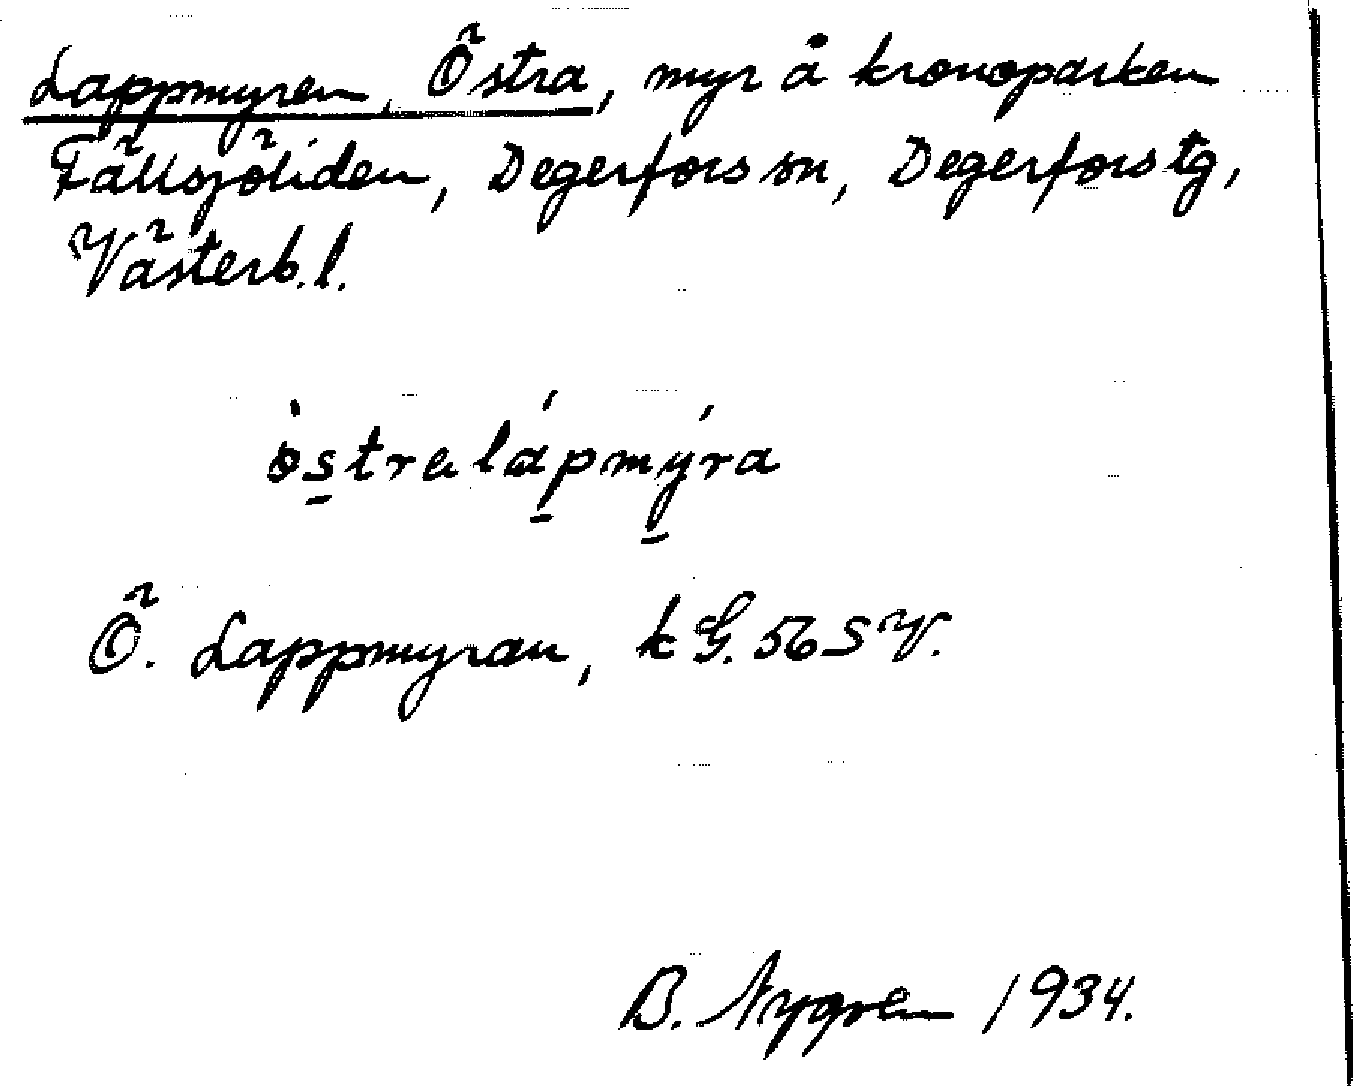 Lappmyren, Östra, myr å kronoparken
Fällsjöliden, Degerfors sn, Degerfors tg,
Västerb. l.
östralápmýra
Ö. Lappmyran, k G. 56 S V.
B. Nygren 1934.